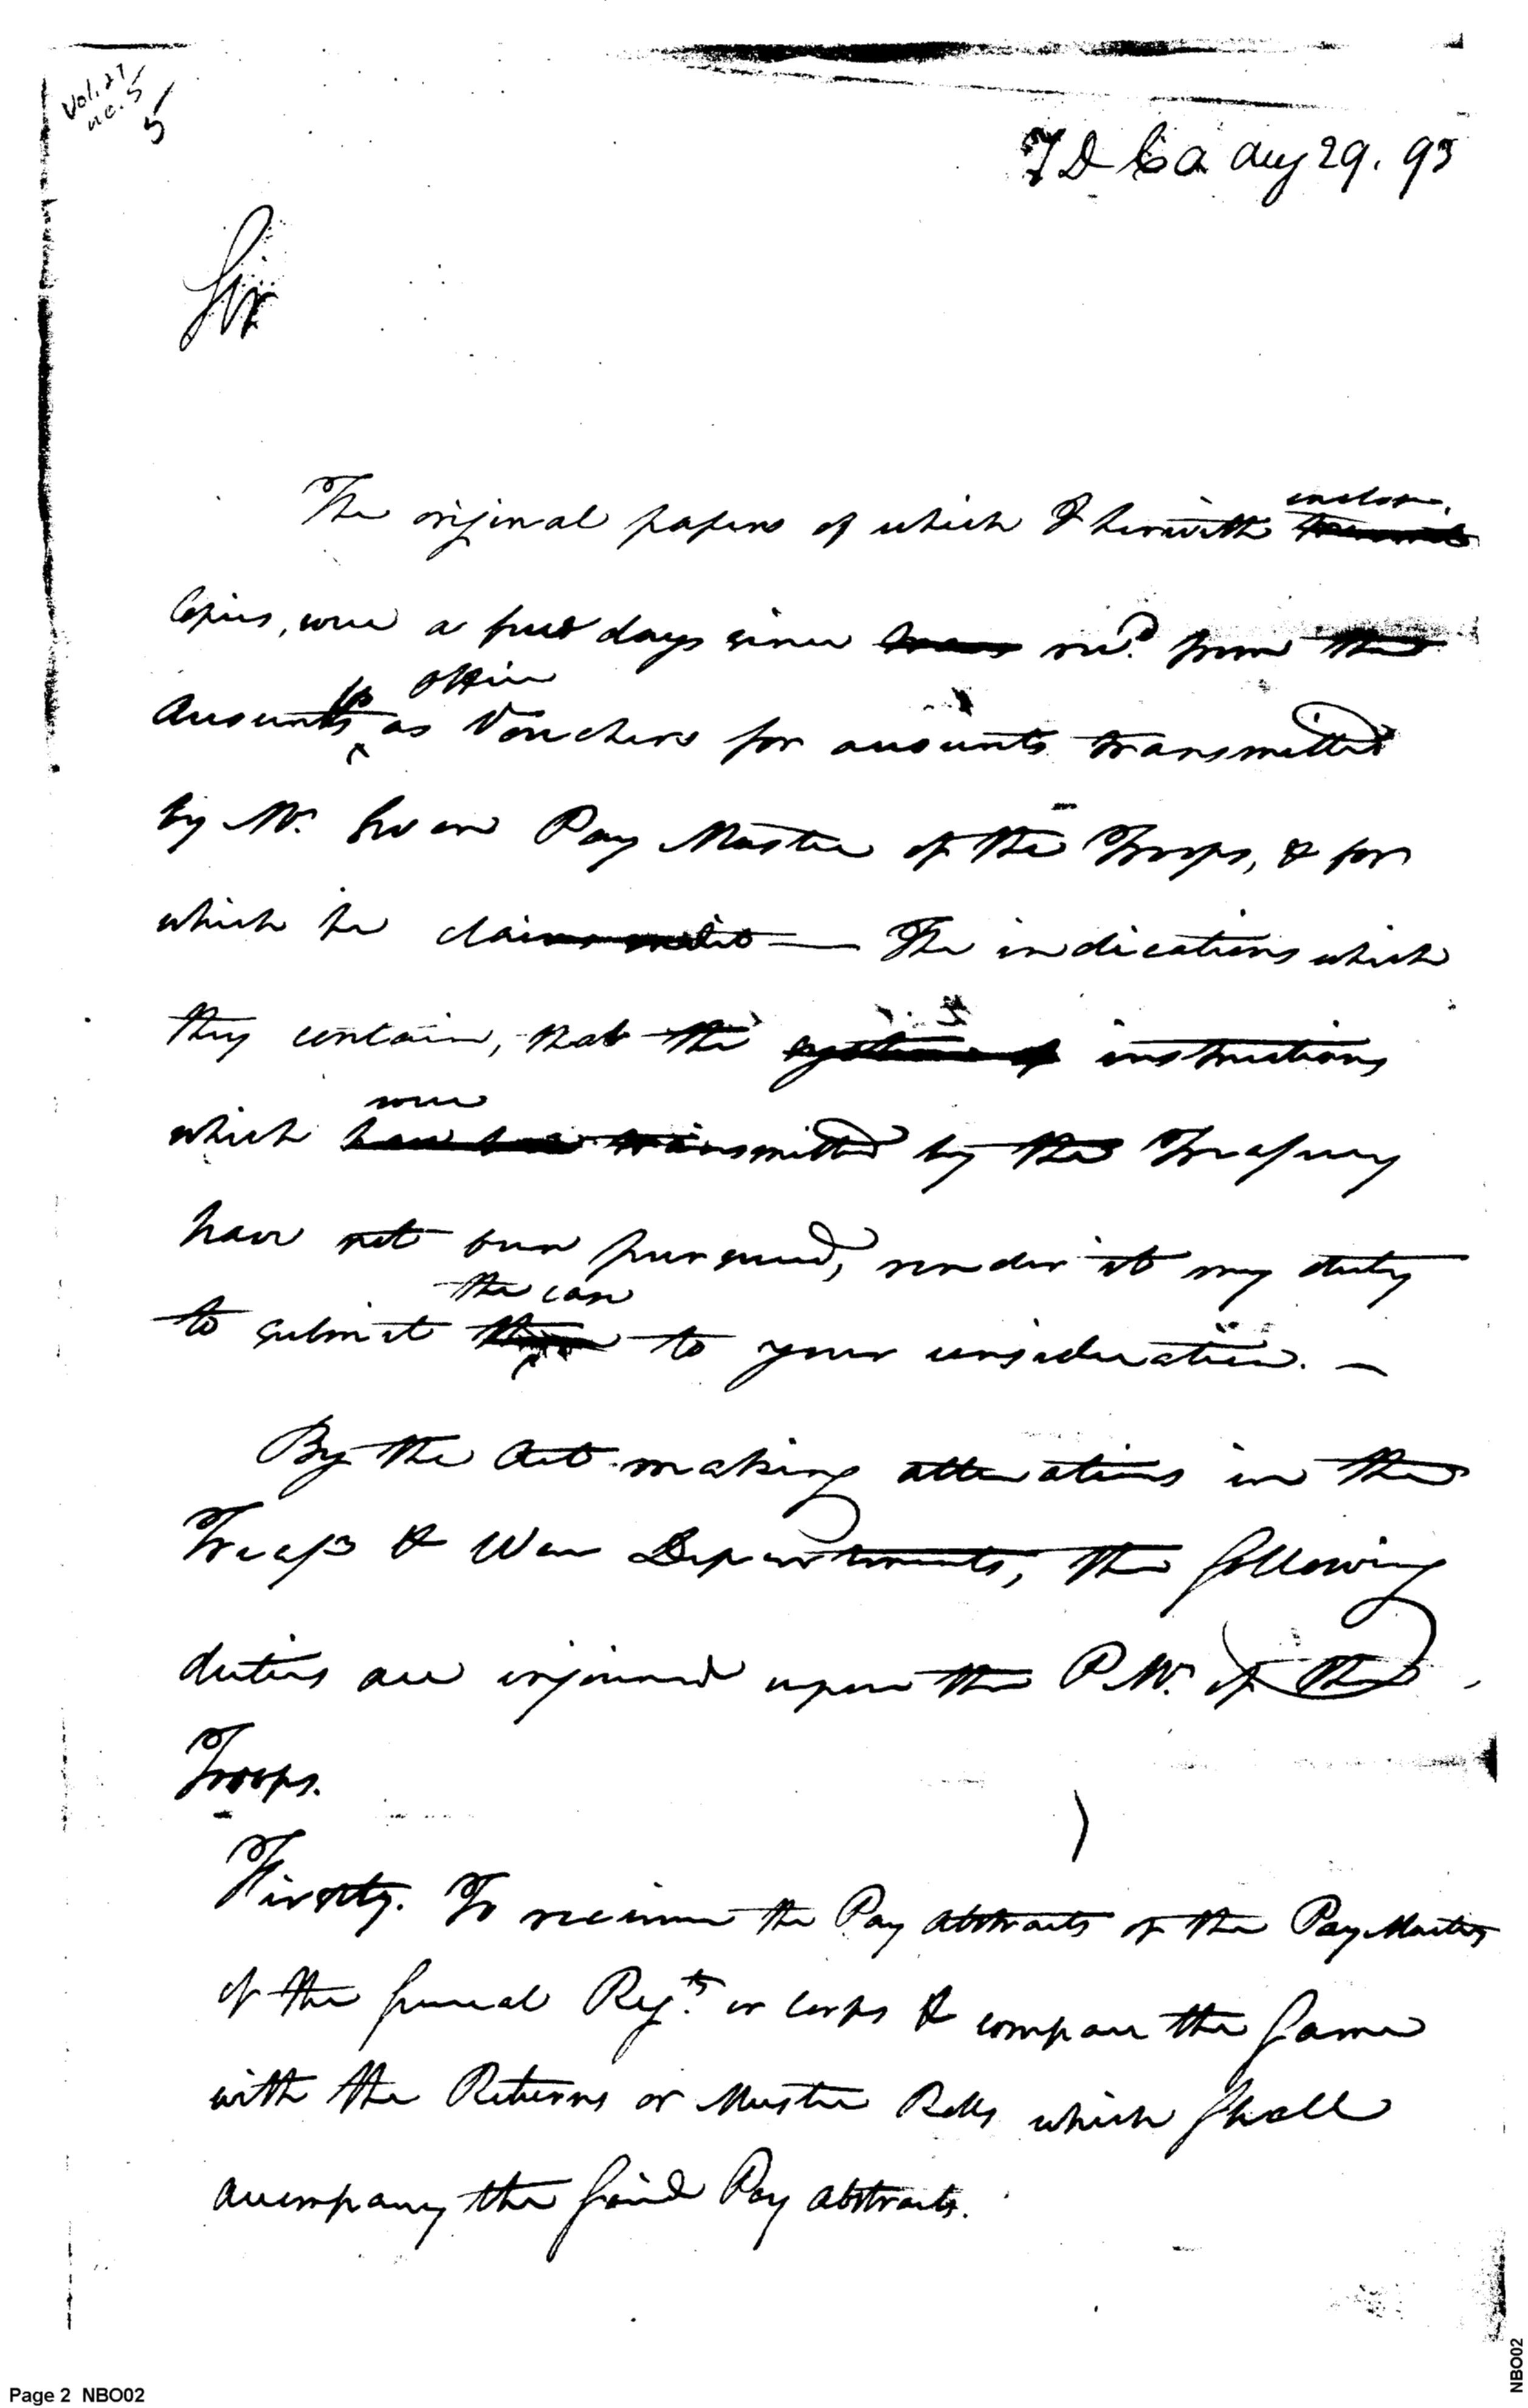 Vol. 27
no. 5
5
T D C O Aug 29. 93
Sir
The original papers of which I herewith inclose
Copies, were a few days since recd. from the
Accountts office as Vouchers for accounts transmitted
by Mr. Swan Pay Master of the Troops, & for
which he claims credit — The indications which
they contain, that the instructions
which were transmitted by the Treasury
have not been pursued, render it my duty
to submit the case to your consideration. —
By the Act making alterations in the
Treasy & War Departments, the following
duties are injoined upon the P.M. of the
Troops.
Firstly. To receive the Pay Abstracts of the PayMasters
of the several Regts. or corps & compare the same
with the Returns or Muster Rolls which shall
accompany the said Pay Abstracts.
Page 2 NBO02
NBO02